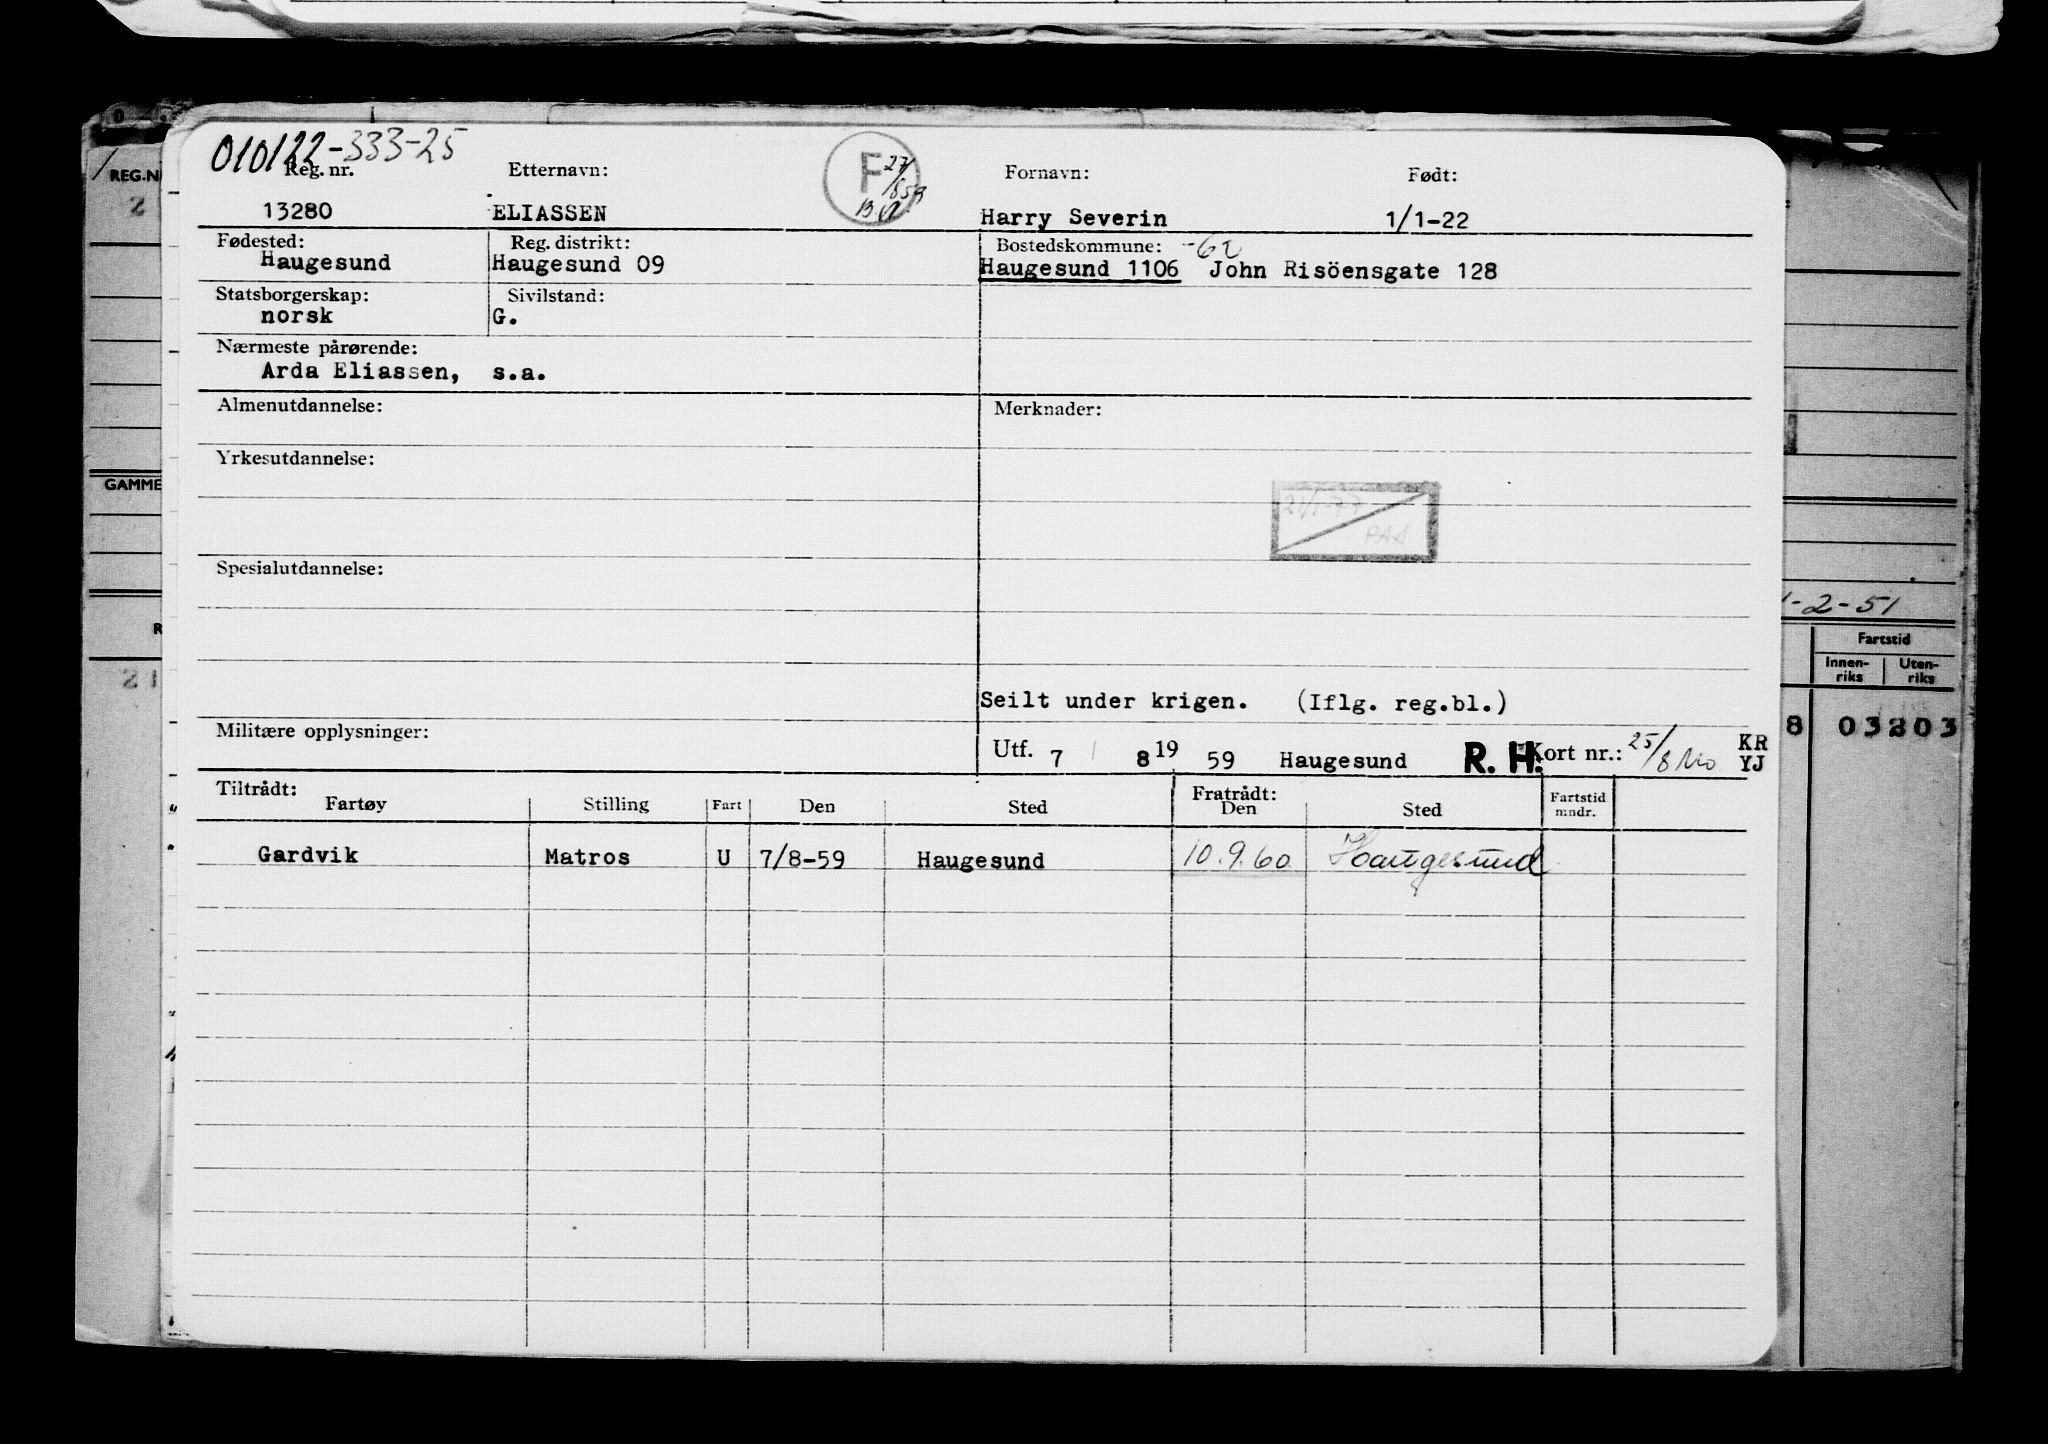 010122-333-25
Reg. nr. Etternavn: F 27/ Fornavn: Født:
13280 ELIASSEN Harry Severin 1/1-22
Fødested: Reg. distrikt: Bostedskommune: -62
Haugesund Haugesund 09 Haugesund 1106 John Risöensgate 128
Statsborgerskap: Sivilstand:
norsk G.
Nærmeste pårørende:
Arda Eliassen, s.a.
Almenutdannelse: Merknader:
Yrkesutdannelse:
21/1-77
PAA
Spesialutdannelse:
Seilt under krigen. (Iflg. reg.bl.)
Militære opplysninger: Utf. 7 / 8 19 59 Haugesund R. H. Kort nr.: 25/8 KR
YJ
Tiltrådt: Fratrådt:
Fartøy Stilling Fart Den Sted Den Sted Fartstid
mndr.
Gardvik Matros U 7/8-59 Haugesund 10.9.60 Haugesund
REG.N
2
GAMME
R
21
-2-51
Fartstid
Innen-
riks Uten-
riks
8 03 203